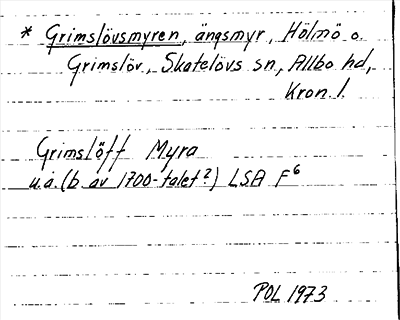 * Grimslövsmyren, ängsmyr, Hölmö o.
Grimslöv, Skatelövs sn, Allbo hd,
Kron. l.
Grimslöff Myra
u.å. (b. av 1700-talet?) LSA F6
POL 1973